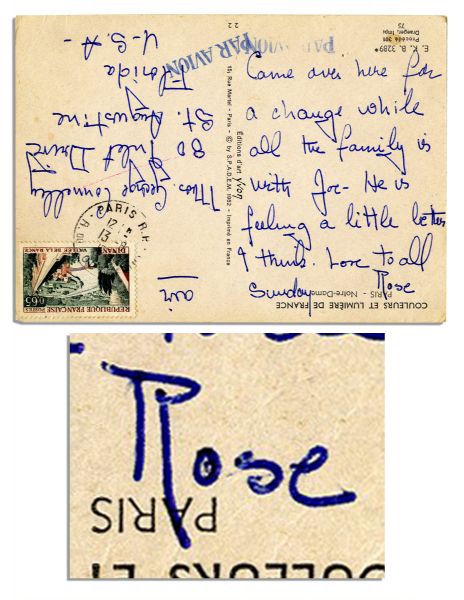 Came over here for
a change while
all the family is
with Joe - He is
feeling a little better
I think. Love to all
Sunday Rose
Mrs. George Connelly
80 Inlet Drive
St. Augustine
Florida
U.S.A -
air
PAR AVION
PAR AVION
PARIS R.P.
RÉPUBLIQUE FRANÇAISE
0,65
POSTES
DINAN
VALLÉE DE LA RANCE
22
Editions d'art Yvon
15, Rue Martel - Paris - © by S.P.A.D.E.M. 1962 - Imprimé en France
E. K. B. 3289*
Procédé 301
Draeger, Imp.
75
COULEURS ET LUMIÈRE DE FRANCE
PARIS - Notre-Dame
Rose
PARIS
OULEURS ET